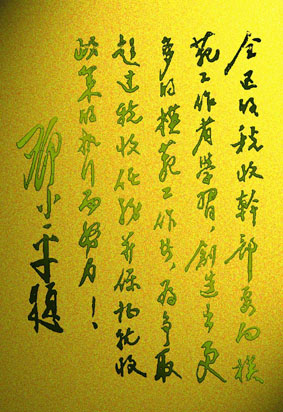 全区的税收幹部要向模
范工作者學習，創造出更
多的模范工作者，为争取
超过税收任務并保税收
政策的执行而努力！
鄧小平題